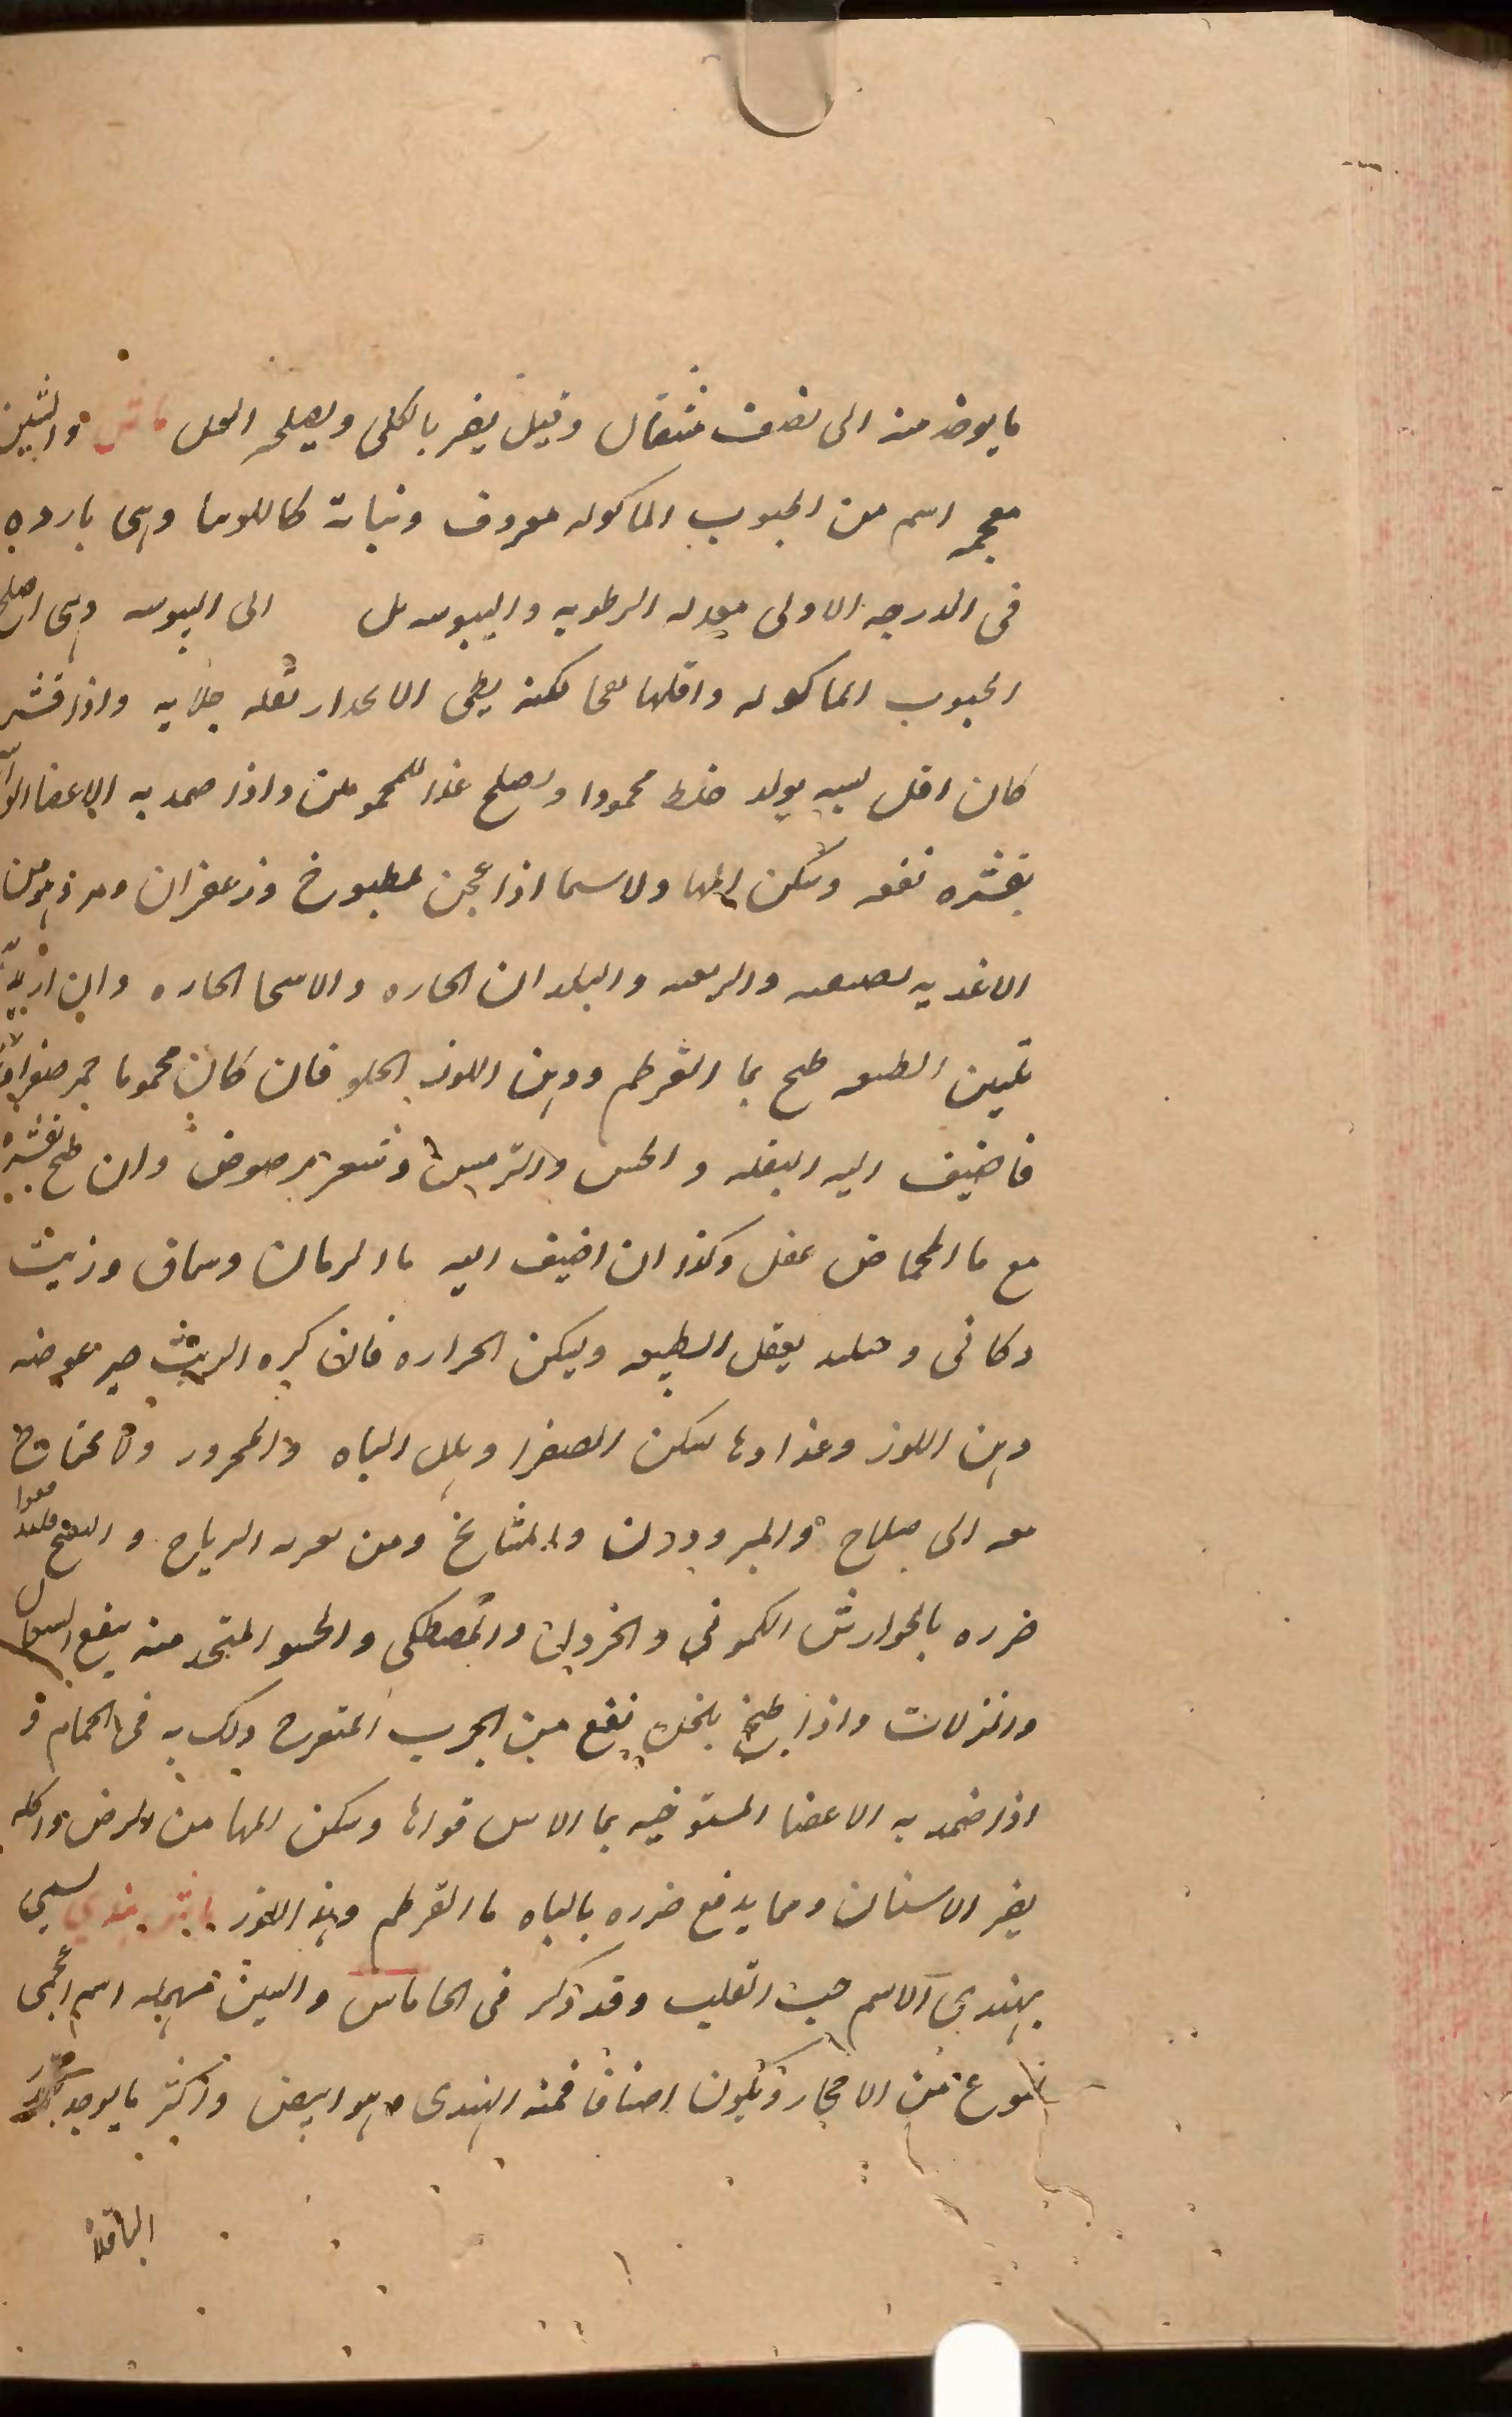 ما يوخذ منه الى نصف مثقال وقيل يضر بالكلى ويصلحه العسل ماش والشين
معجمه اسم من الحبوب الماكوله معروف ونباته كاللوبيا وهى بارده
فى الدرجه الاولى معتدله الرطوبه واليبوسه الى اليبوسه وهى اصلح
الحبوب الماكوله واقلها نفخا لكنه بطى الانحدار لقله جلايه واذا قشر
كان اقل يولد خلط محمودا ويصلح غذا للمحمومين واذا ضمد به الاعضا
بقشره نفعه وسكن المها ولاسيما اذا عجن بمطبوخ وزعفران ومر وهو من
الاغذيه الصيفيه والربيعيه والبلدان الحاره والاسحا الحاره وان اريد به
تليين الطبيعه طبخ بما القرطم ودهن اللوز الحلو فان كان محموما
فاضيف اليه البقله والخس وشعير مرضوض وان طبخ بقشره
مع ما الحماض عقل وكذا ان اضيف اليه ما الرمان وسماق وزيت
يعقل الطبيعه ويسكن الحراره فان كره الزيت صير عوضه
دهن اللوز وغذاوها يسكن الصفرا ويقلل الباه والمحرور ولا يحتاج
معه الى صلاح والمبرودين والمشايخ ومن يعتريه الرياح والنفخ
ضرره بالجوارش الكمونى والخردل والمصطكى والحسو المتخذ منه ينفع السعال
والنزلات واذا طبخ بالخل نفع من الجرب المتقرح ودلك به فى الحمام و
اذا ضمد به الاعضا المسترخيه بما الاس قواها وسكن المها من المرض واكله
يضر الاسنان ومما يدفع ضرره بالباه ما القرطم ودهن اللوز ماش هندي يسمى
بهندى الاسم حب القلب وقد ذكر فى الحا ماس والسين مهمله اسم اعجمى
نوع من الاحجار وتكون اصنافا فمنه الهندى وهو ابيض واكثر ما يوجد
الباقلا